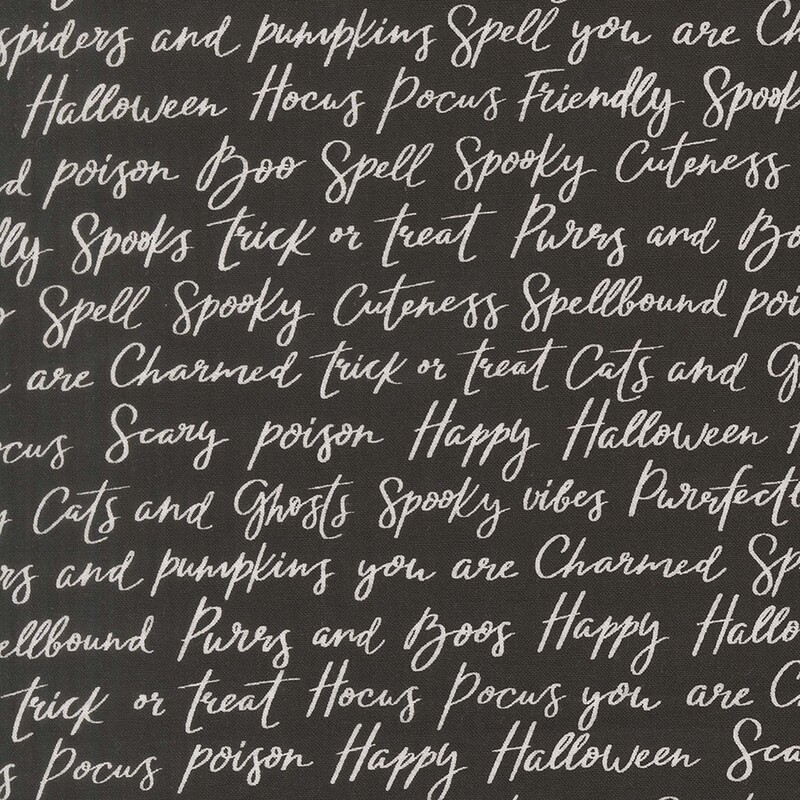 spiders and pumpkins Spell you are Ch
Halloween Hocus Pocus Friendly Spook
d poison Boo Spell Spooky Cuteness
lly Spooks trick or treat Purrs and Bo
Spell Spooky Cuteness Spellbound poi
are Charmed trick or treat Cats and G
ocus Scary poison Happy Halloween
y Cats and Ghosts Spooky vibes Purrfectl
rs and pumpkins you are Charmed Sp
ellbound Purrs and Boos Happy Hallo
trick or treat Hocus Pocus you are C
s Pocus poison Happy Halloween Sca